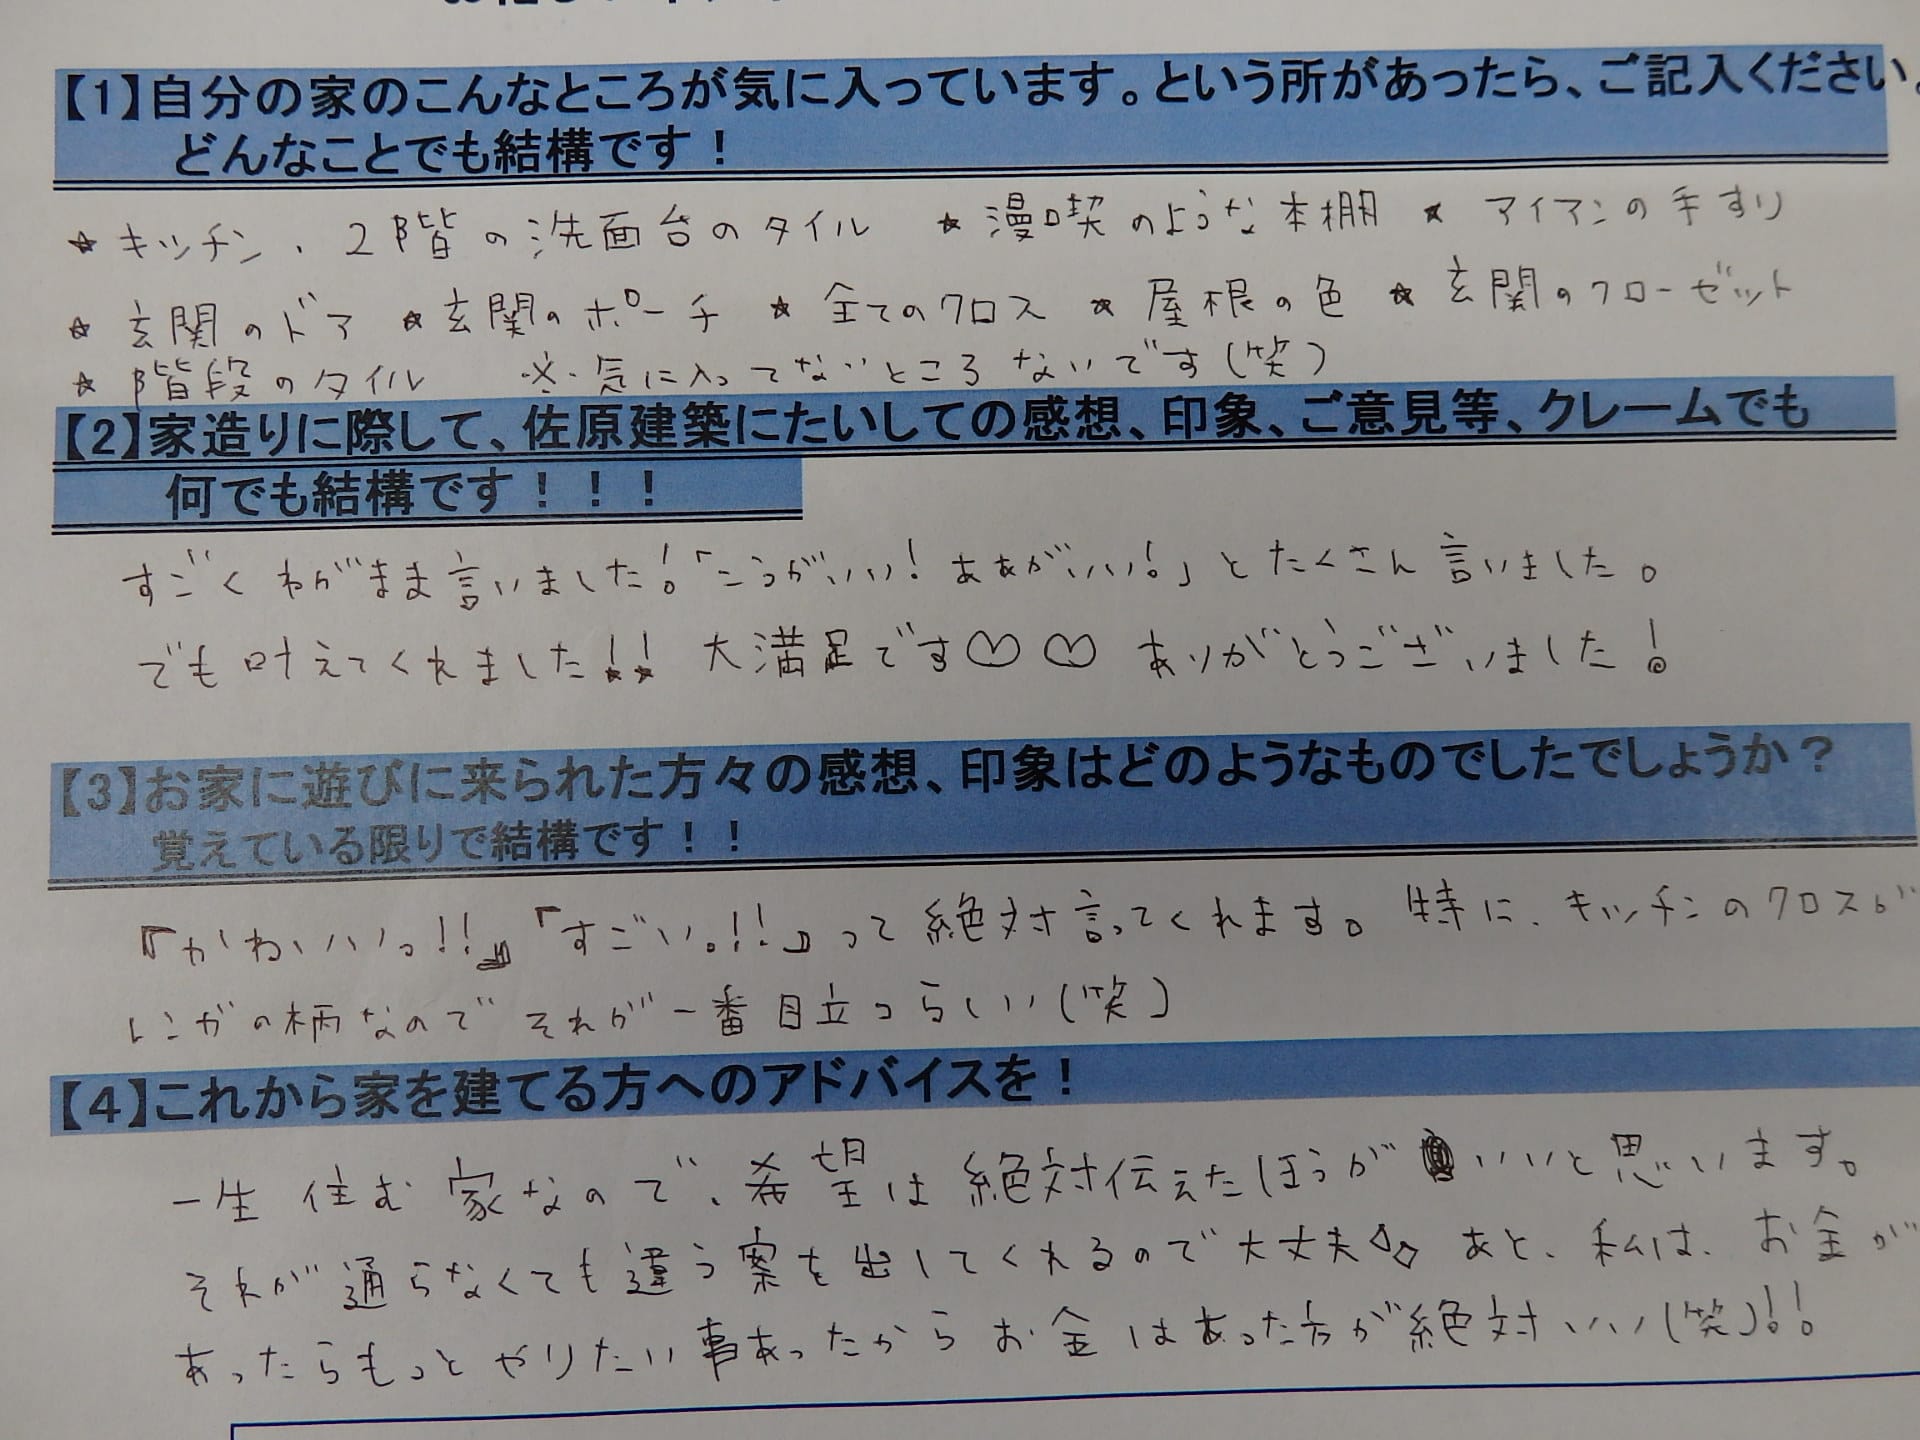 【1】自分の家のこんなところが気に入っています。という所があったら、ご記入ください。
どんなことでも結構です！
★キッチン、2階の洗面台のタイル ★漫喫のような本棚 ★アイアンの手すり
☆玄関のドア ★玄関のポーチ ★全てのクロス ★屋根の色 ★玄関のクローゼット
★階段のタイル ※気に入ってないところないです(笑)
【2】家造りに際して、佐原建築にたいしての感想、印象、ご意見等、クレームでも
何でも結構です！！！
すごくわがまま言いました！「こうがいい！ああがいい！」とたくさん言いました。
でも叶えてくれました！！大満足です♡♡ ありがとうございました！
【3】お家に遊びに来られた方々の感想、印象はどのようなものでしたでしょうか？
覚えている限りで結構です！！
『かわいいっ!!』『すごい。!!』って絶対言ってくれます。特に、キッチンのクロスが
レンガの柄なのでそれが一番目立つらしい(笑)
【4】これから家を建てる方へのアドバイスを！
一生住む家なので、希望は絶対伝えたほうがいいと思います。
それが通らなくても違う案を出してくれるので大丈夫◇◇ あと、私は、お金が
あったらもっとやりたい事あったからお金はあった方が絶対いい(笑)!!